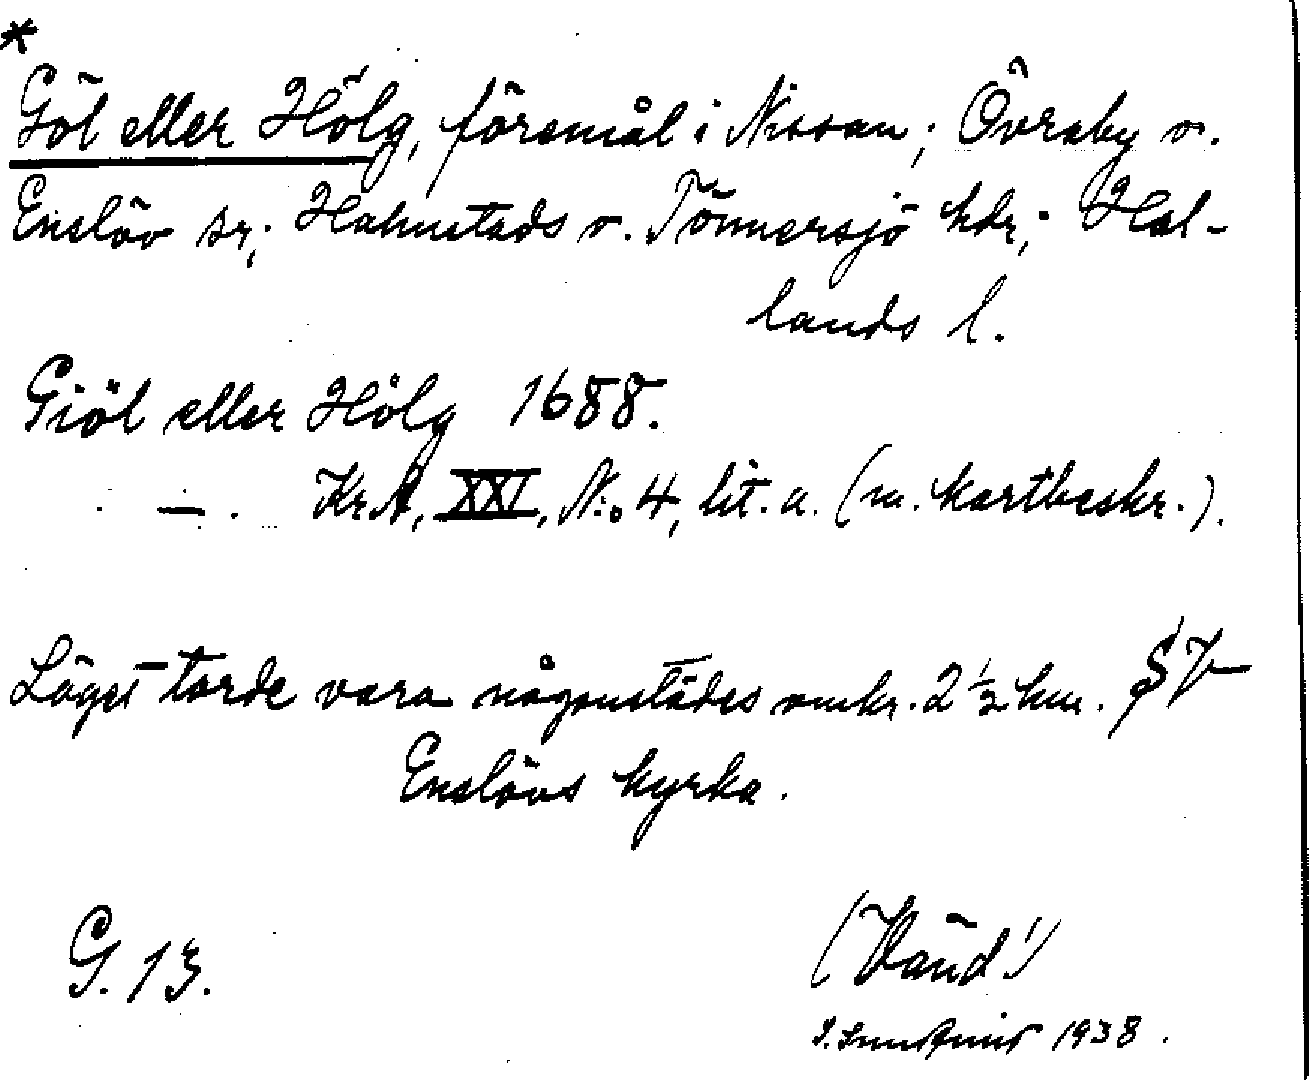 *
Göl eller Hölg, föremål i Nissan; Övraby o.
Enslöv sr; Halmstads o. Tönnersjö hdr; Hal-
lands l.
Giöl eller Hölg 1688.
— . KrA, XXI, N:o 4, lit. a. (m. kartbeskr.).
Läget torde vara någonstädes omkr. 2 ½ km. SV
Enslövs kyrka.
G. 13.
(Vänd!)
1938.